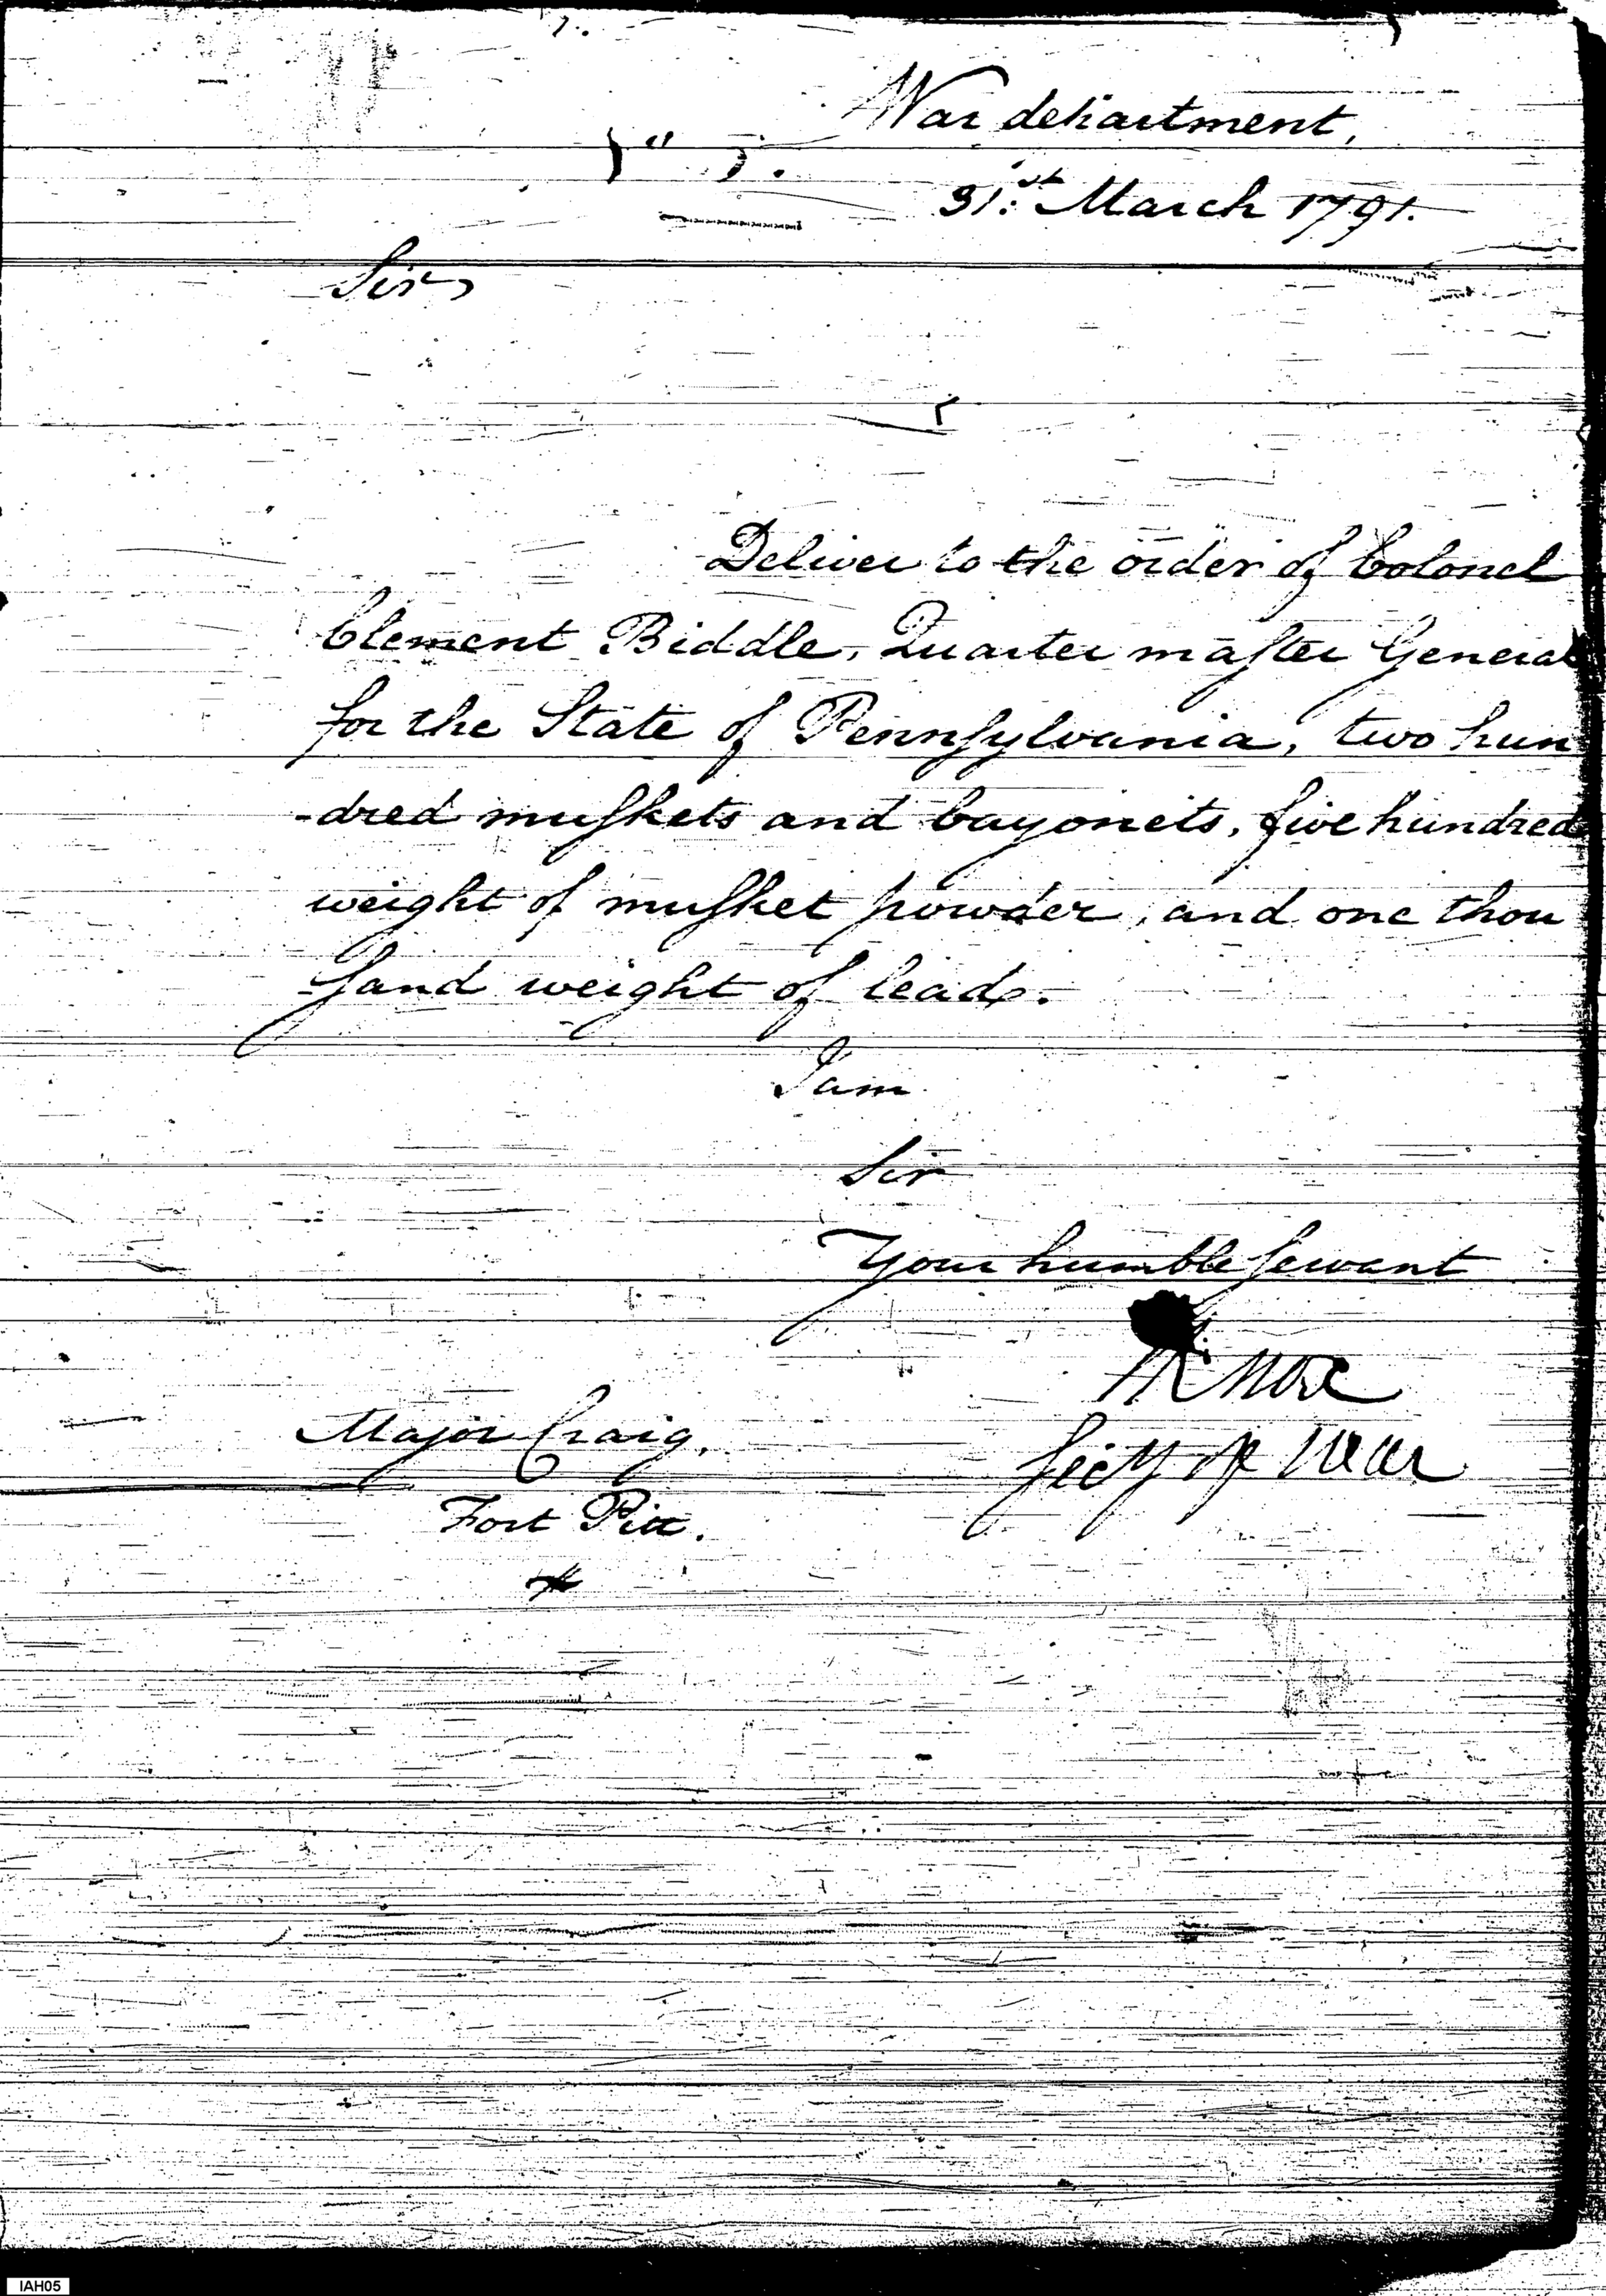 War department,
31st March 1791.
Sir,
Deliver to the order of Colonel
Clement Biddle, Quarter master General
for the State of Pennsylvania, two hun
-dred muskets and bayonets, five hundred
weight of musket powder, and one thou
-sand weight of lead.
I am
Sir
Your humble servant
HKnox
Secy of War
Major Craig.
Fort Pitt.
IAH05